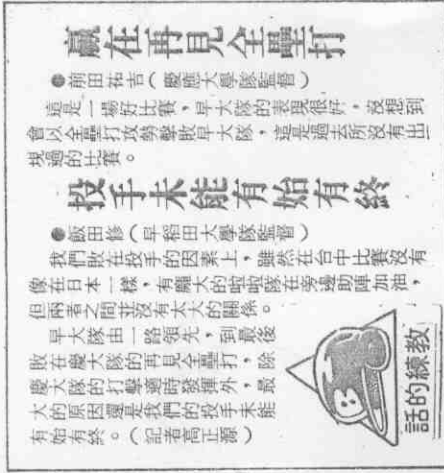 贏在再見全壘打
●前田祐吉（慶應大學隊監督）
這是一場好比賽，早大隊的表現很好，沒想到
會以全壘打攻勢擊敗早大隊，這是過去所沒有出
現過的比賽。
投手未能有始有終
●飯田修（早稻田大學隊監督）
我們敗在投手的因素上，雖然在台中比賽沒有
像在日本一樣，有龐大的啦啦隊在旁邊助陣加油，
但兩者之間並沒有太大的關係。
早大隊由一路領先，到最後
敗在慶大隊的再見全壘打，除
慶大隊的打擊適時發揮外，最
大的原因還是我們的投手未能
有始有終。（記者高正源）
B
教練的話